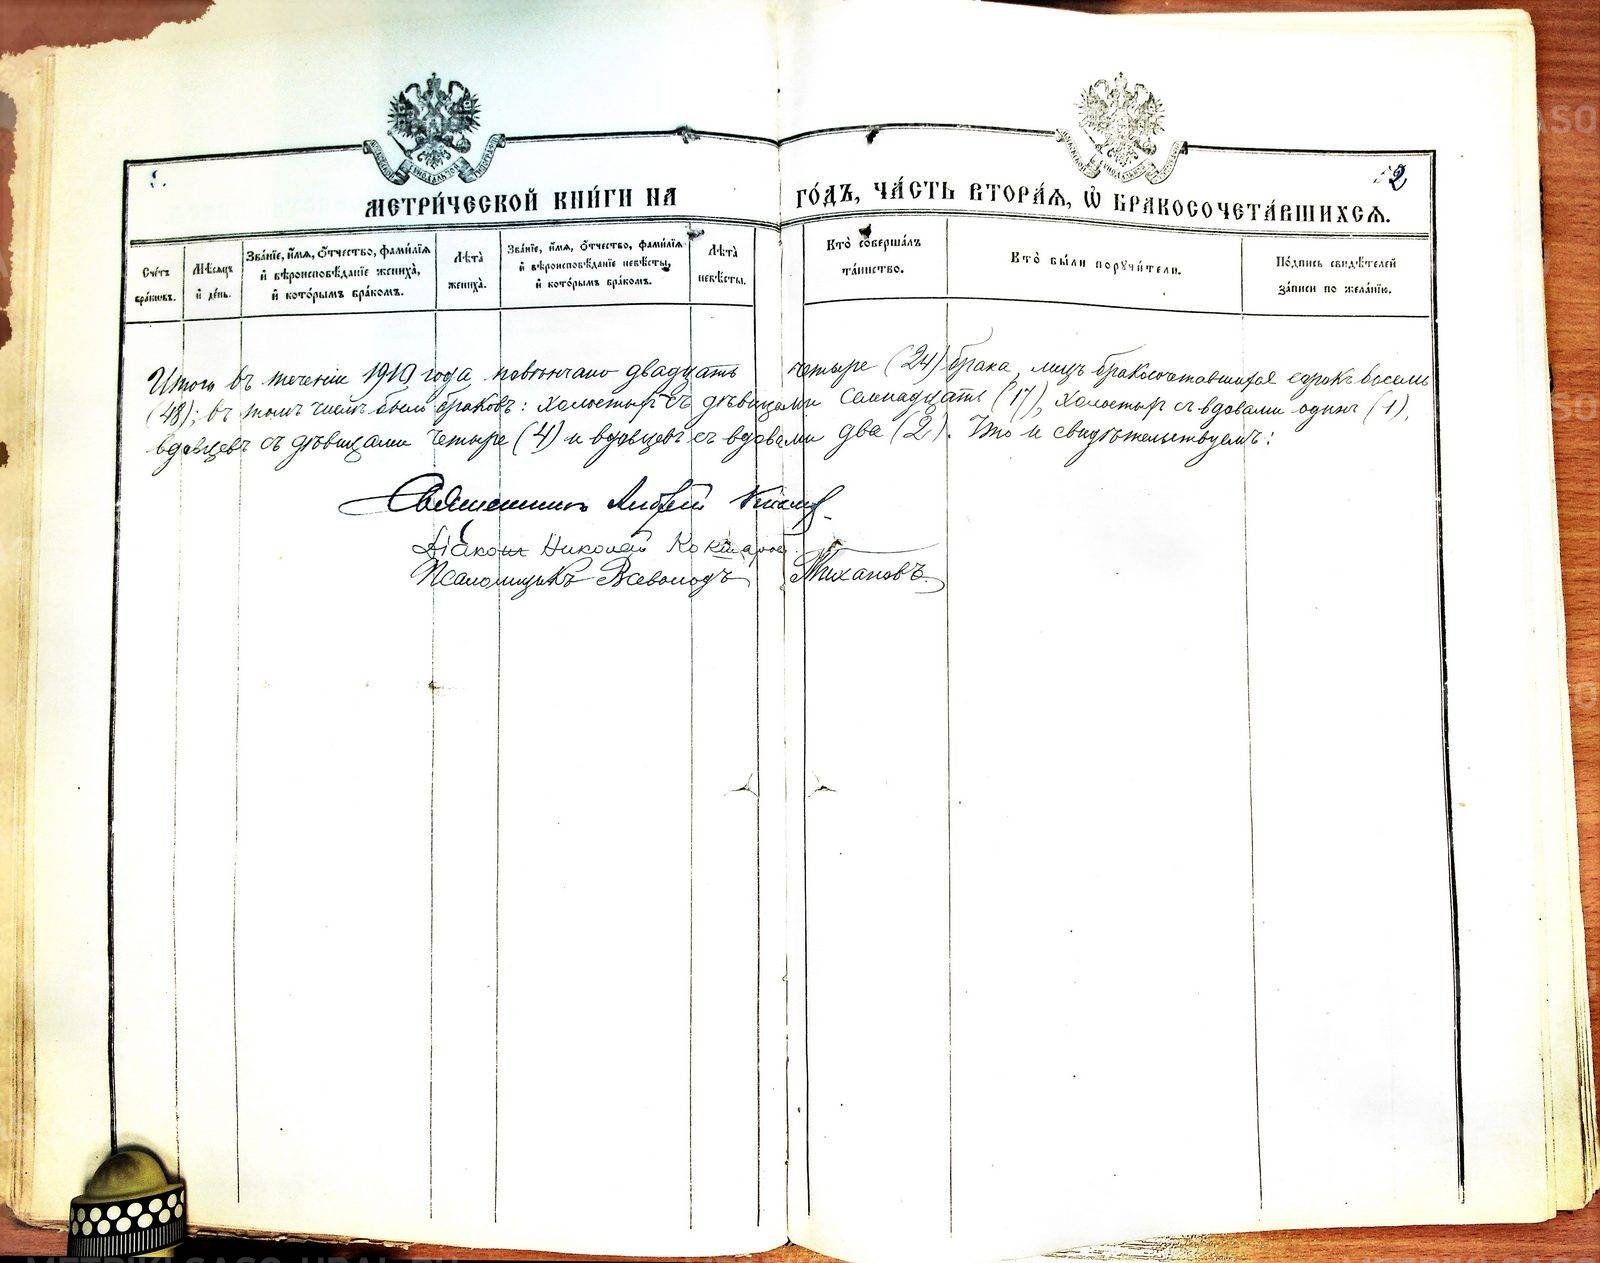 52
МЕТРИ́ЧЕСКОЙ КНИ́ГИ НА ГО́ДЪ, ЧА́СТЬ ВТОРА́Я, Ѡ БРАКОСОЧЕТА́ВШИХСЯ.
Сче́тъ бра́ковъ.
Мѣ́сяцъ и де́нь.
Зва́нїе, и́мя, о́тчество, фами́лїя
и҆ вѣроисповѣ́данїе жениха̀,
и҆ кото́рымъ бра́комъ.
Лѣта̀
жениха̀.
Зва́нїе, и́мя, о́тчество, фами́лїя
и҆ вѣроисповѣ́данїе невѣ́сты,
и҆ кото́рымъ бра́комъ.
Лѣта̀
невѣ́сты.
Кто̀ соверша́лъ
та́инство.
Кто̀ бы́ли поручи́тели.
По́дпись свидѣ́телей
за́писи по жела́нїю.
Итого въ теченіи 1910 года повѣнчано двадцать четыре (24) брака, лицъ бракосочетавшихся сорокъ восемь
(48); въ томъ числѣ было браковъ: холостыхъ съ дѣвицами семнадцать (17), холостыхъ съ вдовами одинъ (1),
вдовцевъ съ дѣвицами четыре (4) и вдовцевъ съ вдовами два (2). Что и свидѣтельствуемъ:
Священникъ Андрей
Діаконъ Николай Кокшаровъ
Псаломщикъ Всеволодъ Тихановъ.